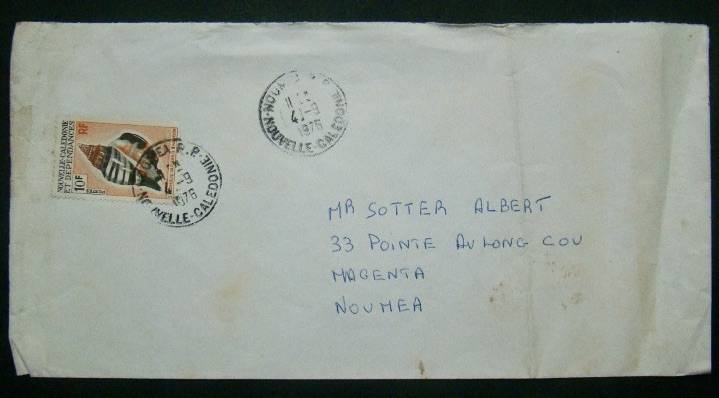 NOUVELLE-CALÉDONIE
ET DÉPENDANCES
RF
10F
R.P.
1976
NOUVELLE-CALEDONIE
1976
NOUVELLE-CALEDONIE
MR SOTTER ALBERT
33 POINTE AU LONG COU
MAGENTA
NOUMEA